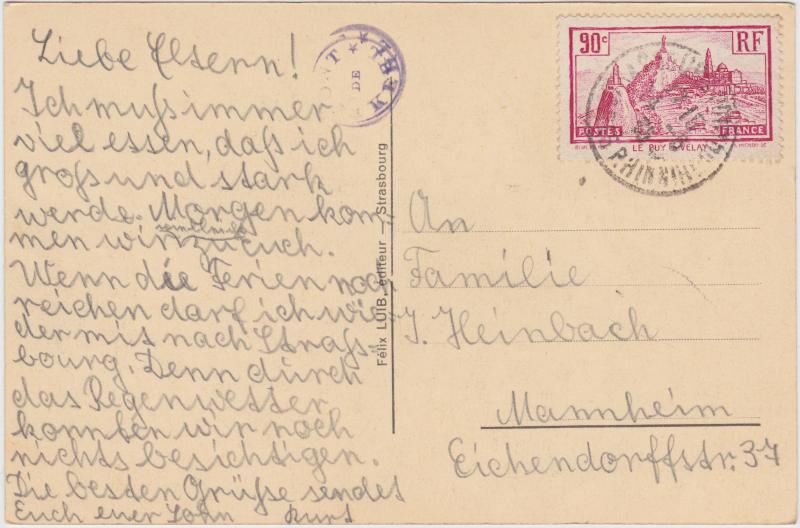 Liebe Eltern!
Ich muß immer
viel essen, daß ich
groß und stark
werde. Morgen kom-
men wir zu euch.
Wenn die Ferien noch
reichen darf ich wie-
der mit nach Straß-
bourg. Denn durch
das Regenwetter
konnten wir noch
nichts besichtigen.
Die besten Grüße sendet
Euch euer Sohn Kurt
Félix LUIB, éditeur - Strasbourg
90c RF
POSTES FRANCE
LE PUY EN VELAY
An
Familie
J. Heinbach
Mannheim
Eichendorffstr. 37